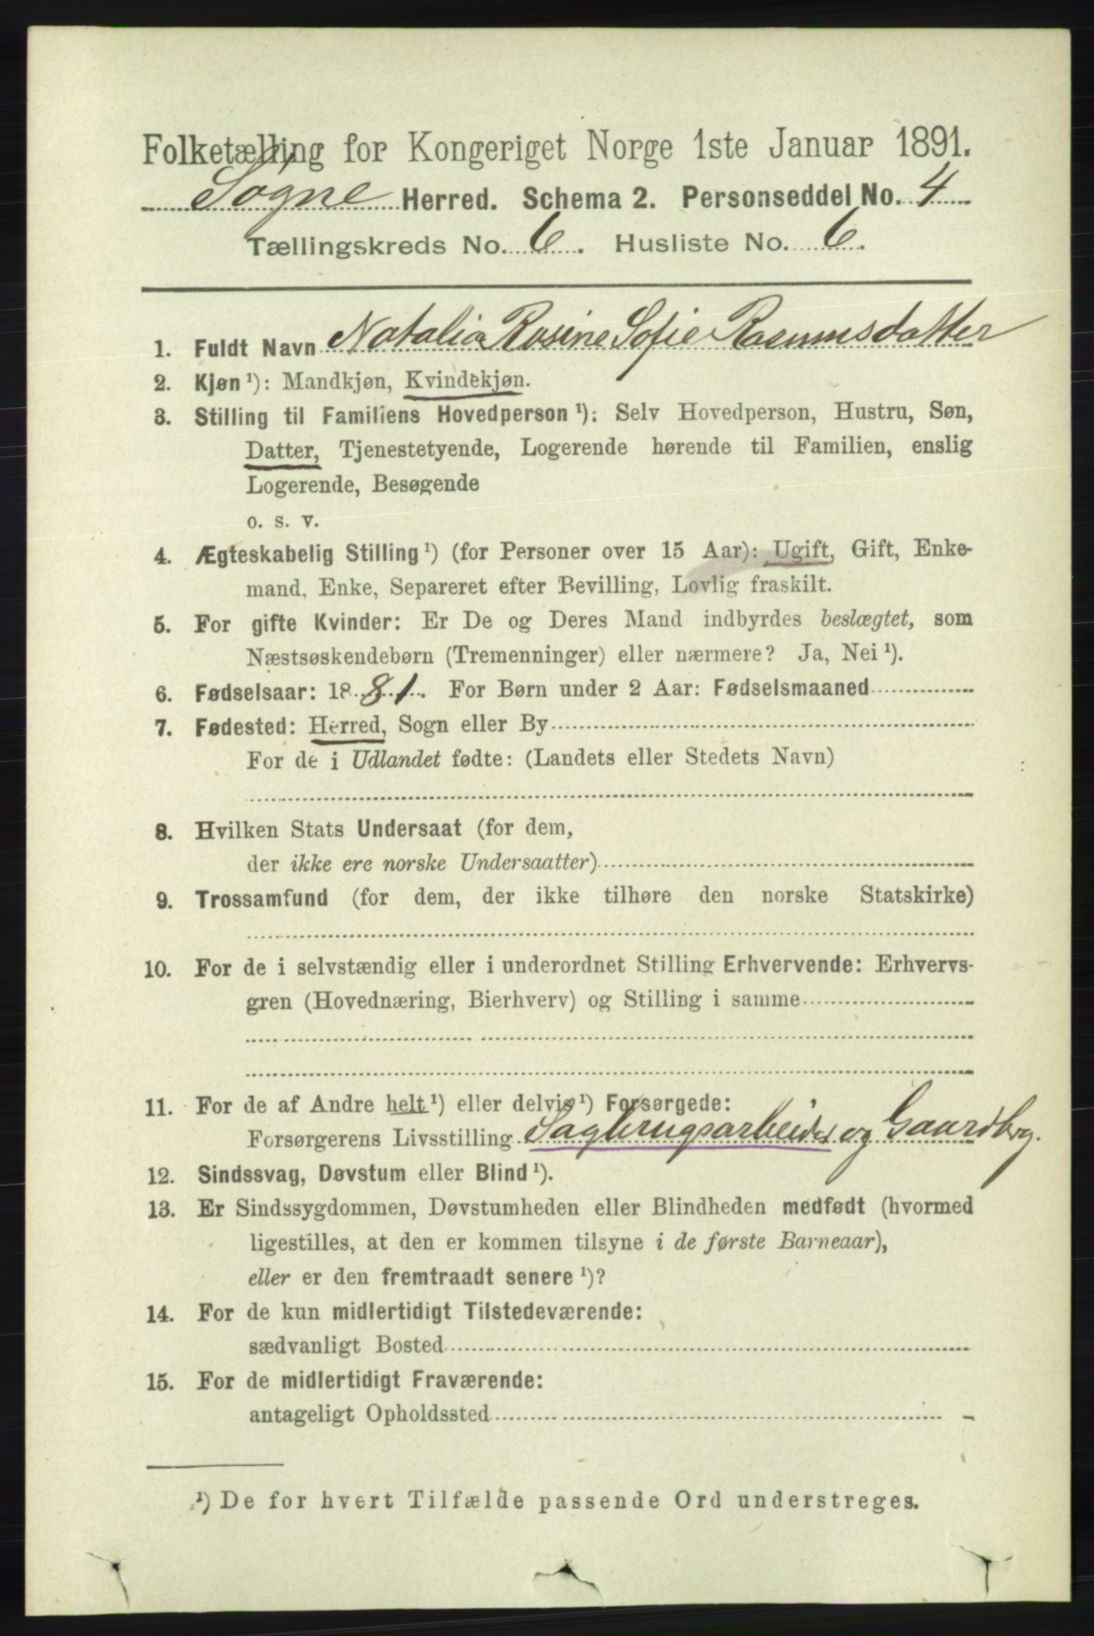 Folketælling for Kongeriget Norge 1ste Januar 1891.
Søgne Herred. Schema 2. Personseddel No. 4
Tællingskreds No. 6. Husliste No. 6.
1. Fuldt Navn Natalia Rosine Sofie Rasmusdatter
2. Kjøn ¹): Mandkjøn, Kvindekjøn.
3. Stilling til Familiens Hovedperson ¹): Selv Hovedperson, Hustru, Søn,
Datter, Tjenestetyende, Logerende hørende til Familien, enslig
Logerende, Besøgende
o. s. v.
4. Ægteskabelig Stilling ¹) (for Personer over 15 Aar): Ugift, Gift, Enke-
mand, Enke, Separeret efter Bevilling, Lovlig fraskilt.
5. For gifte Kvinder: Er De og Deres Mand indbyrdes beslægtet, som
Næstsøskendebørn (Tremenninger) eller nærmere? Ja, Nei ¹).
6. Fødselsaar: 1881. For Børn under 2 Aar: Fødselsmaaned
7. Fødested: Herred, Sogn eller By
For de i Udlandet fødte: (Landets eller Stedets Navn)
8. Hvilken Stats Undersaat (for dem,
der ikke ere norske Undersaatter)
9. Trossamfund (for dem, der ikke tilhøre den norske Statskirke)
10. For de i selvstændig eller i underordnet Stilling Erhvervende: Erhvervs-
gren (Hovednæring, Bierhverv) og Stilling i samme
11. For de af Andre helt ¹) eller delvis ¹) Forsørgede:
Forsørgerens Livsstilling Sagbrugsarbeider og Gaardbrg.
12. Sindssvag, Døvstum eller Blind ¹).
13. Er Sindssygdommen, Døvstumheden eller Blindheden medfødt (hvormed
ligestilles, at den er kommen tilsyne i de første Barneaar),
eller er den fremtraadt senere ¹)?
14. For de kun midlertidigt Tilstedeværende:
sædvanligt Bosted
15. For de midlertidigt Fraværende:
antageligt Opholdssted
¹) De for hvert Tilfælde passende Ord understreges.